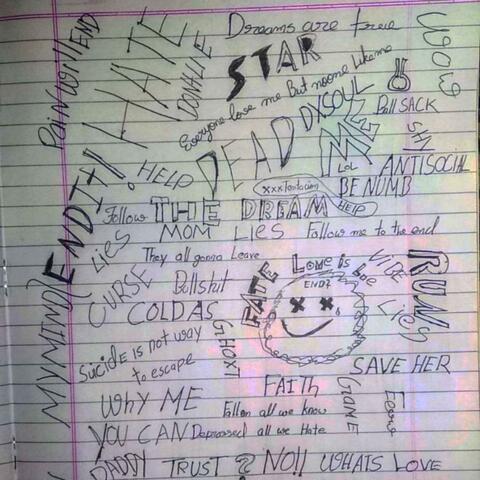 Dreams are free
PAIN WILL END
HATE
DON'T LIE
STAR
WOW
Everyone love me But no one Like me
DXSOUL
Ball SACK
DEAD
ME
SHY
END IT!!
HELP
LOL
ANTISOCIAL
xxxTentacion
BE NUMB
Follow THE DREAM HELP
MOM LIES Follow me to the end
LIES
They all gonna Leave
LOVE is
VIBE
RUN
CURSE
Bullshit
FATE
END?
MY MIND
COLD AS
Lies
SuiciDE is not way
to escape
GHOXT
SAVE HER
FAITH
WhY ME
Fallen all we know
GONE
YOU CAN Depressed all we Hate
DADDY TRUST ? NO!! WHATS LOVE